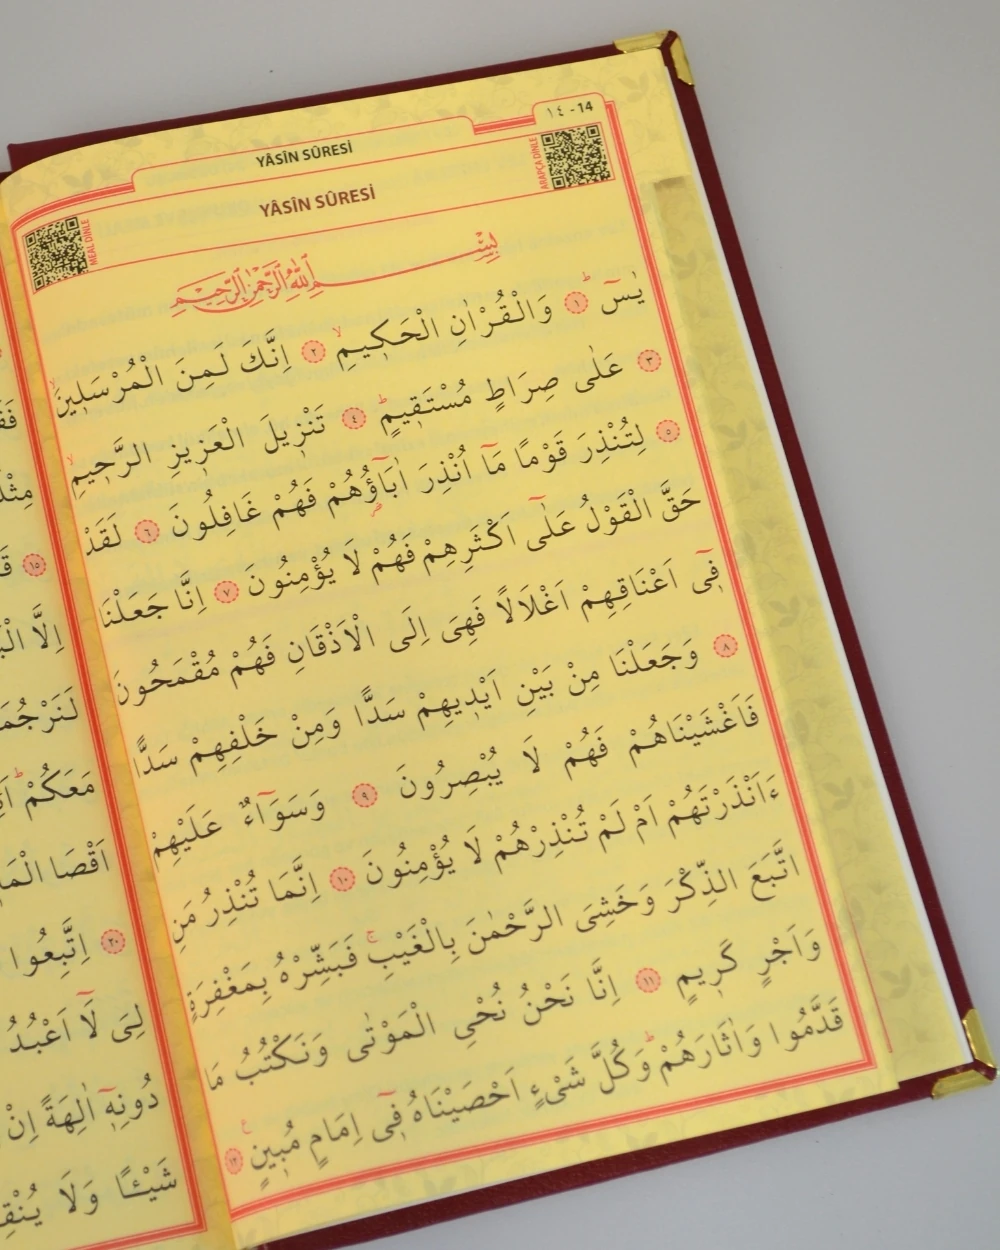 ١٤ - 14
YÂSÎN SÛRESİ
YÂSÎN SÛRESİ
ARAPÇA DİNLE
MEAL DİNLE
بِسْمِ اللّٰهِ الرَّحْمٰنِ الرَّحٖيمِ
يٰسٓ ۚ ﴿١﴾ وَالْقُرْاٰنِ الْحَكٖيمِ ۙ ﴿٢﴾ اِنَّكَ لَمِنَ الْمُرْسَلٖينَ ۙ
﴿٣﴾ عَلٰى صِرَاطٍ مُسْتَقٖيمٍ ؕ ﴿٤﴾ تَنْزٖيلَ الْعَزٖيزِ الرَّحٖيمِ ۙ
﴿٥﴾ لِتُنْذِرَ قَوْمًا مَٓا اُنْذِرَ اٰبَٓاؤُهُمْ فَهُمْ غَافِلُونَ ﴿٦﴾ لَقَدْ
حَقَّ الْقَوْلُ عَلٰٓى اَكْثَرِهِمْ فَهُمْ لَا يُؤْمِنُونَ ﴿٧﴾ اِنَّا جَعَلْنَا
فٖٓى اَعْنَاقِهِمْ اَغْلَالًا فَهِىَ اِلَى الْاَذْقَانِ فَهُمْ مُقْمَحُونَ
﴿٨﴾ وَجَعَلْنَا مِنْ بَيْنِ اَيْدٖيهِمْ سَدًّا وَمِنْ خَلْفِهِمْ سَدًّا
فَاَغْشَيْنَاهُمْ فَهُمْ لَا يُبْصِرُونَ ﴿٩﴾ وَسَوَٓاءٌ عَلَيْهِمْ
ءَاَنْذَرْتَهُمْ اَمْ لَمْ تُنْذِرْهُمْ لَا يُؤْمِنُونَ ﴿١٠﴾ اِنَّمَا تُنْذِرُ مَنِ
اتَّبَعَ الذِّكْرَ وَخَشِىَ الرَّحْمٰنَ بِالْغَيْبِ ۚ فَبَشِّرْهُ بِمَغْفِرَةٍ
وَاَجْرٍ كَرٖيمٍ ﴿١١﴾ اِنَّا نَحْنُ نُحْيِ الْمَوْتٰى وَنَكْتُبُ مَا
قَدَّمُوا وَاٰثَارَهُمْ ؕ وَكُلَّ شَىْءٍ اَحْصَيْنَاهُ فٖٓى اِمَامٍ مُبٖينٍ ﴿١٢﴾
مِثْلُ
﴿١٥﴾
اِلَّا
لَنَرْجُمَ
مَعَكُمْ ؕ
اَقْصَا
﴿٢٠﴾ اِتَّبِعُوا
لِىَ لَٓا اَعْبُدُ
دُونِهٖٓ اٰلِهَةً اِنْ
شَيْـًٔا وَلَا